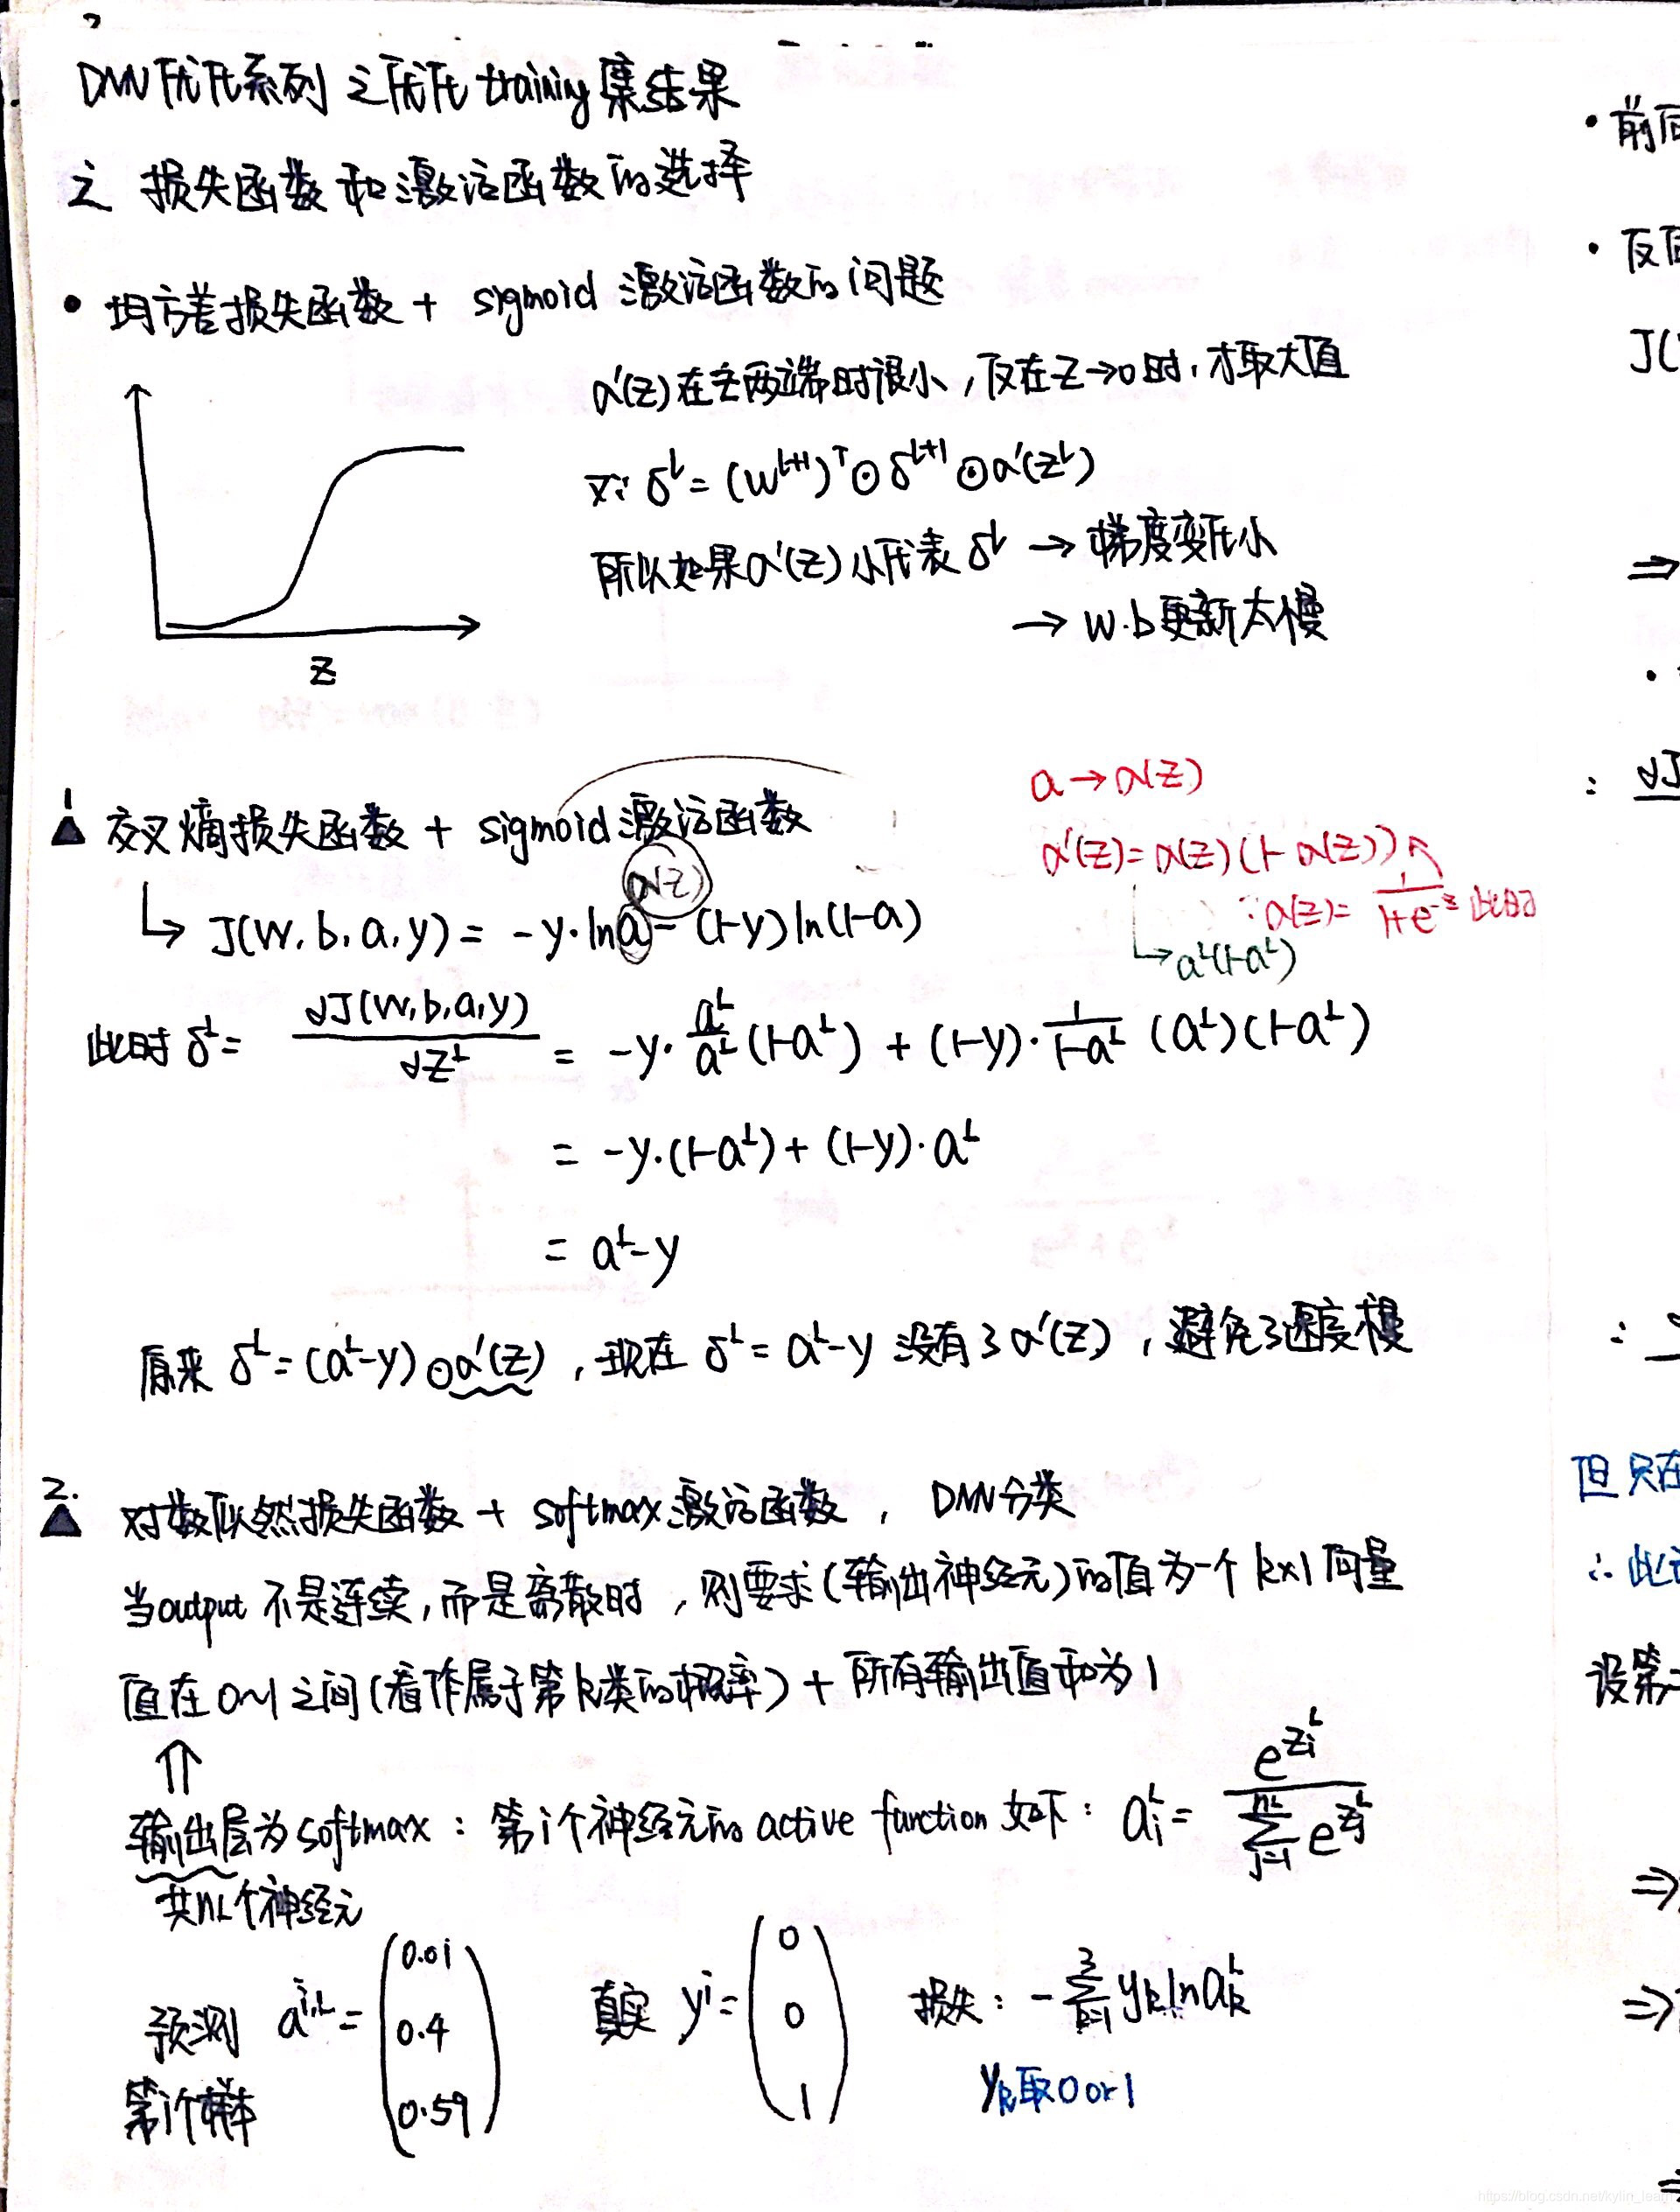 DNN优化系列 之优化 training集结果
之 损失函数和激活函数的选择
• 均方差损失函数 + sigmoid 激活函数的问题
α'(z)在z两端时很小，仅在z→0时，才取大值
又∵ δᴸ = (W^{L+1})^T ⊙ δ^{L+1} ⊙ α'(zᴸ)
所以如果α'(z)小代表 δᴸ → 梯度变化小
→ w.b更新太慢
z
1
▲ 交叉熵损失函数 + sigmoid激活函数
α(z)
↳ J(W, b, a, y) = -y·ln a - (1-y) ln(1-a)
a → α(z)
α'(z) = α(z)(1-α(z))
∵ α(z) = 1/(1+e^{-z}) 此时
↳ aᴸ(1-aᴸ)
此时 δᴸ = ∂J(W,b,a,y)/∂zᴸ = -y· aᴸ/aᴸ (1-aᴸ) + (1-y)· 1/(1-aᴸ) (aᴸ)(1-aᴸ)
= -y·(1-aᴸ) + (1-y)·aᴸ
= aᴸ-y
原来 δᴸ = (aᴸ-y) ⊙ α'(z)，现在 δᴸ = aᴸ-y 没有了α'(z)，避免了速度慢
2.
▲ 对数似然损失函数 + softmax激活函数，DNN分类
当output 不是连续，而是离散时，则要求(输出神经元)的值为一个 k×1 向量
值在 0~1 之间(看作属于第k类的概率) + 所有输出值和为1
⇑
输出层为softmax：第i个神经元的 active function 如下：aᵢᴸ = e^{zᵢᴸ} / Σ_{j=1}^{nL} e^{zⱼᴸ}
共nL个神经元
预测 a^{i,L} = (0.01 0.4 0.59) 真实 yⁱ = (0 0 1) 损失：-Σ_{k=1}^{3} yₖ ln aₖᴸ
第i个样本
yₖ取0 or 1
• 前向
J(
⇒
∂J
但只在
∴ 此
设第
⇒
⇒